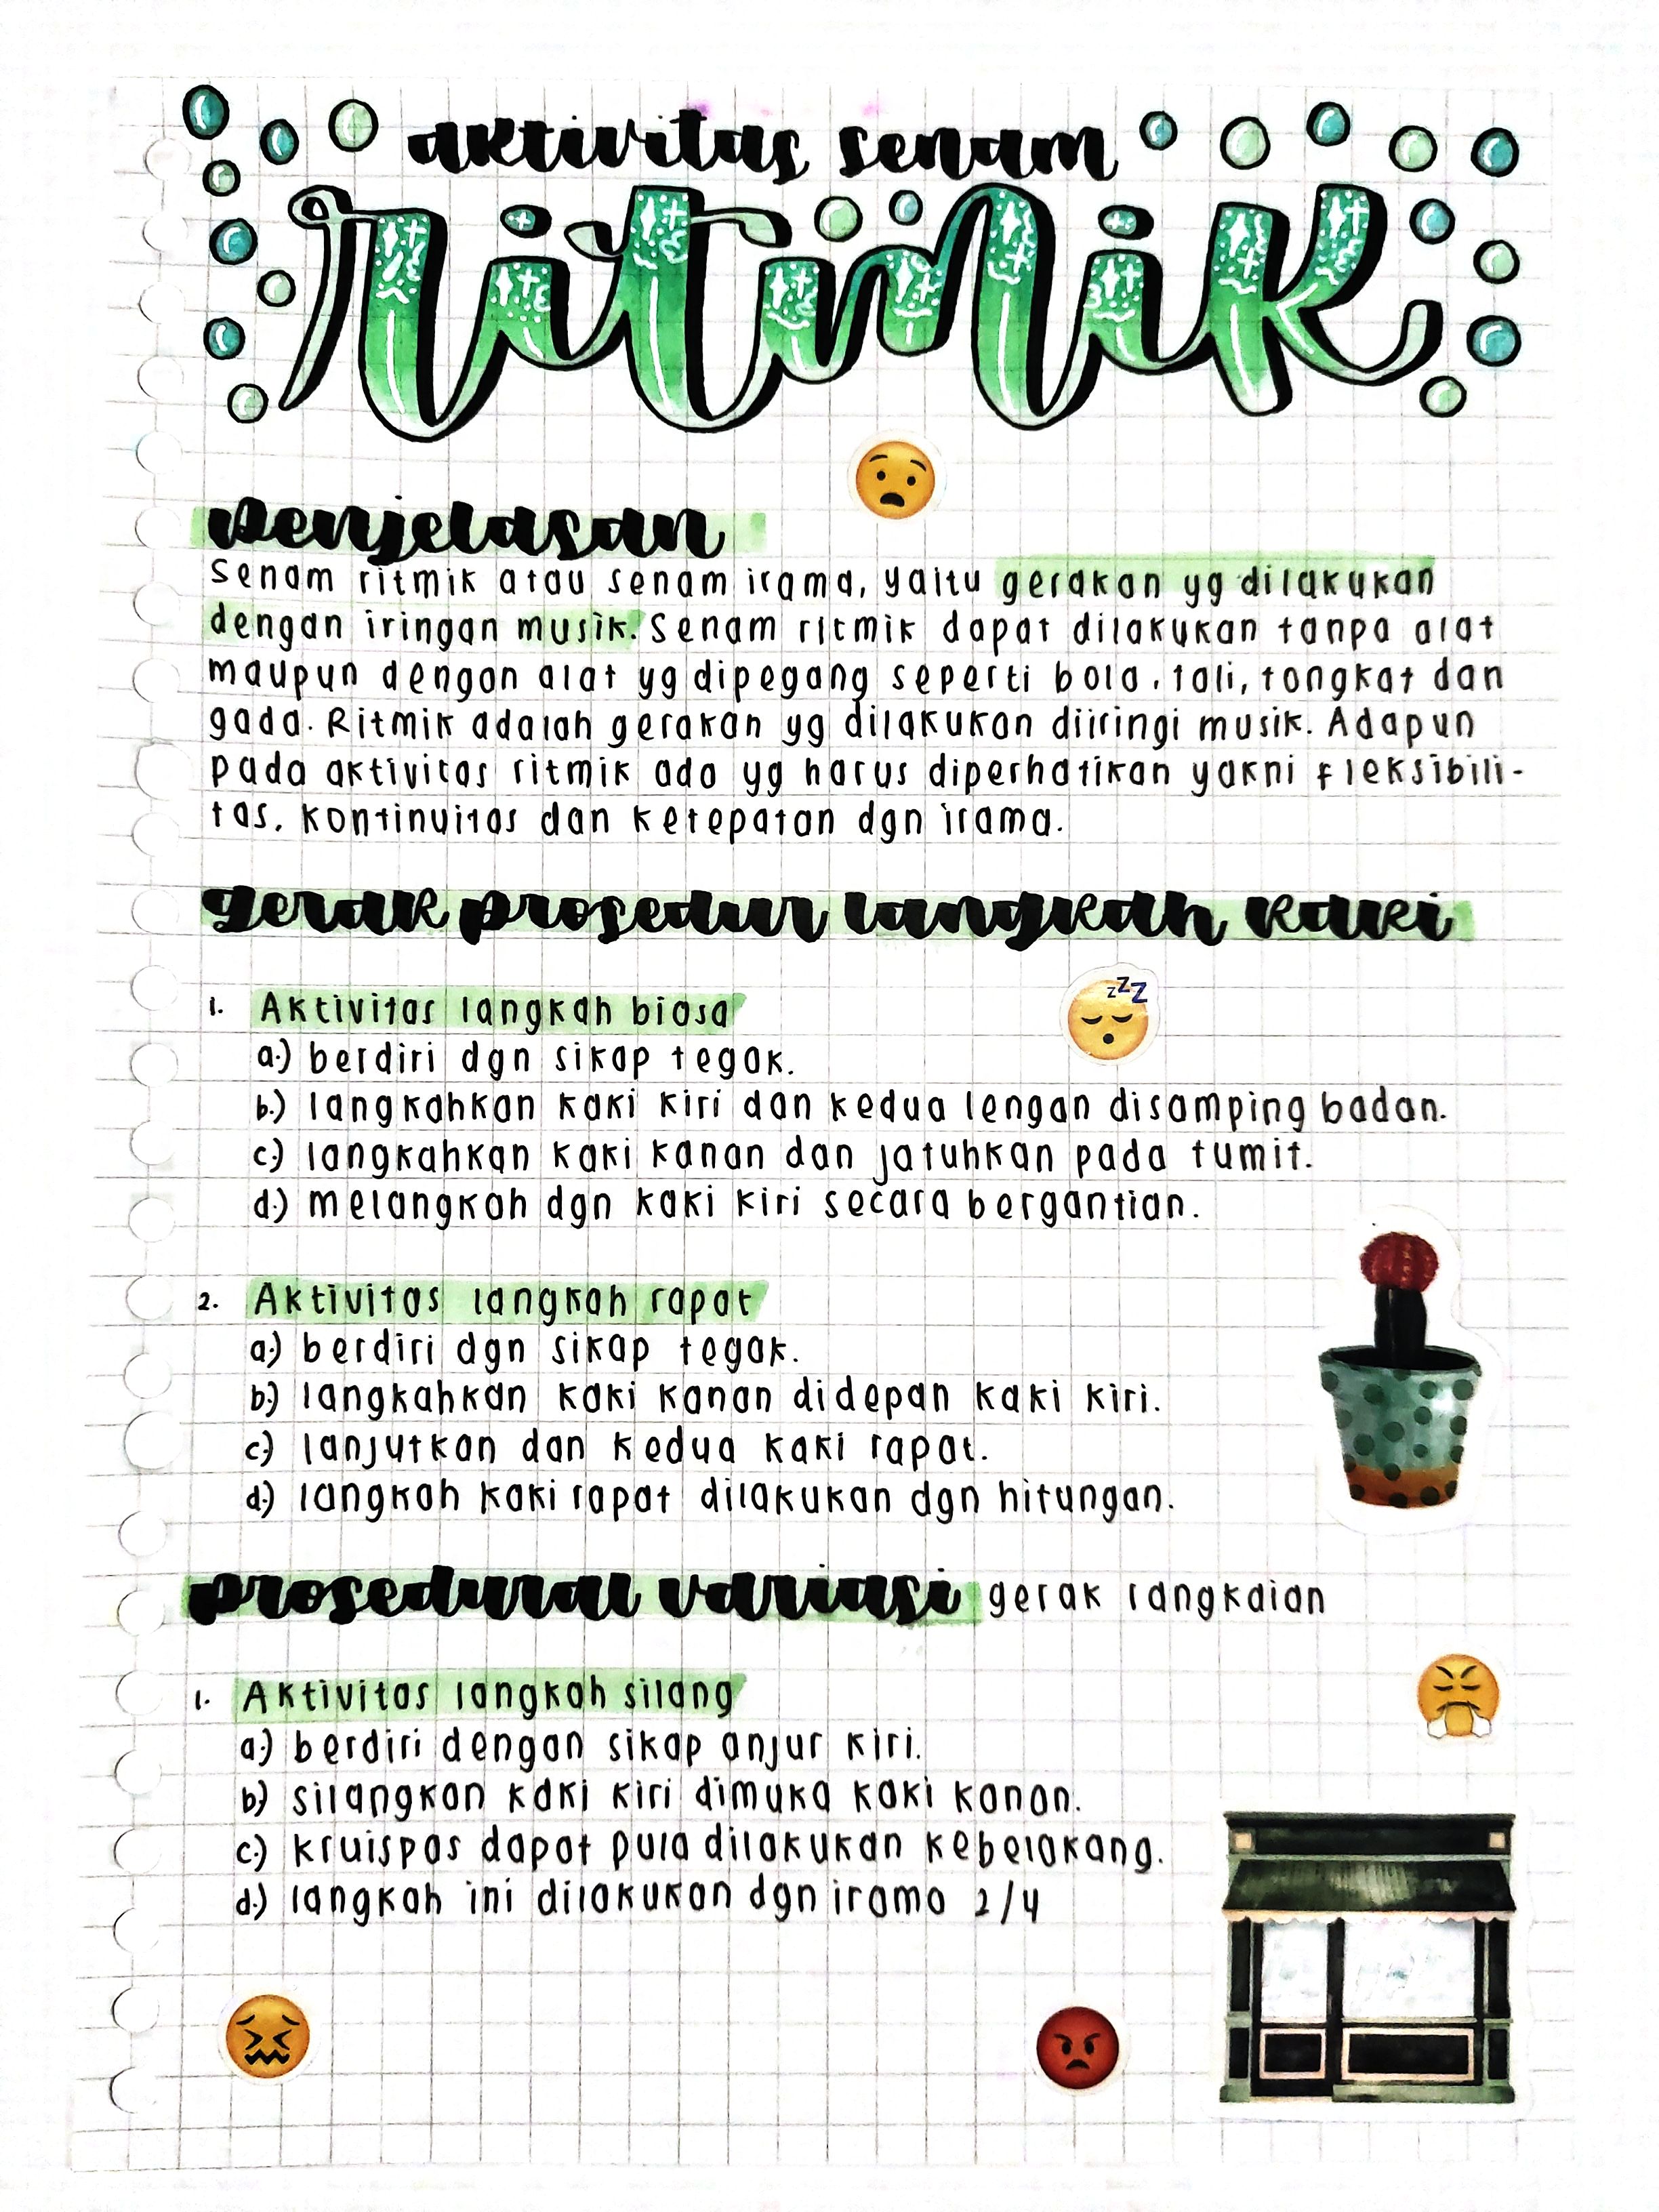 aktivitas senam
ritmik
Penjelasan
Senam ritmik atau senam irama, yaitu gerakan yg dilakukan
dengan iringan musik. Senam ritmik dapat dilakukan tanpa alat
maupun dengan alat yg dipegang seperti bola, tali, tongkat dan
gada. Ritmik adalah gerakan yg dilakukan diiringi musik. Adapun
pada aktivitas ritmik ada yg harus diperhatikan yakni fleksibili-
tas, kontinuitas dan ketepatan dgn irama.
gerak prosedur langkah kaki
zzZ
1. Aktivitas langkah biasa
a.) berdiri dgn sikap tegak.
b.) langkahkan kaki kiri dan kedua lengan disamping badan.
c.) langkahkan kaki kanan dan jatuhkan pada tumit.
d.) melangkah dgn kaki kiri secara bergantian.
2. Aktivitas langkah rapat
a.) berdiri dgn sikap tegak.
b.) langkahkan kaki kanan didepan kaki kiri.
c.) lanjutkan dan kedua kaki rapat.
d.) langkah kaki rapat dilakukan dgn hitungan.
prosedural variasi gerak rangkaian
1. Aktivitas langkah silang
a.) berdiri dengan sikap anjur kiri.
b.) silangkan kaki kiri dimuka kaki kanan.
c.) kruispas dapat pula dilakukan kebelakang.
d.) langkah ini dilakukan dgn irama 2/4